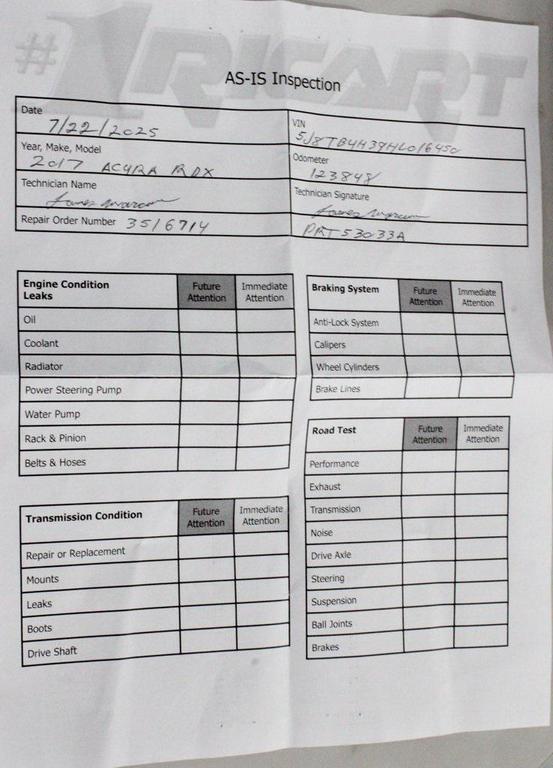 #1 RICART
AS-IS Inspection
Date
7/22/2025
VIN
5J8TB4H39HL016450
Year, Make, Model
2017 ACURA RDX
Odometer
123848
Technician Name
Technician Signature
Repair Order Number 3516714
PRT53033A
Engine Condition
Leaks
Future Attention
Immediate Attention
Oil
Coolant
Radiator
Power Steering Pump
Water Pump
Rack & Pinion
Belts & Hoses
Transmission Condition
Future Attention
Immediate Attention
Repair or Replacement
Mounts
Leaks
Boots
Drive Shaft
Braking System
Future Attention
Immediate Attention
Anti-Lock System
Calipers
Wheel Cylinders
Brake Lines
Road Test
Future Attention
Immediate Attention
Performance
Exhaust
Transmission
Noise
Drive Axle
Steering
Suspension
Ball Joints
Brakes